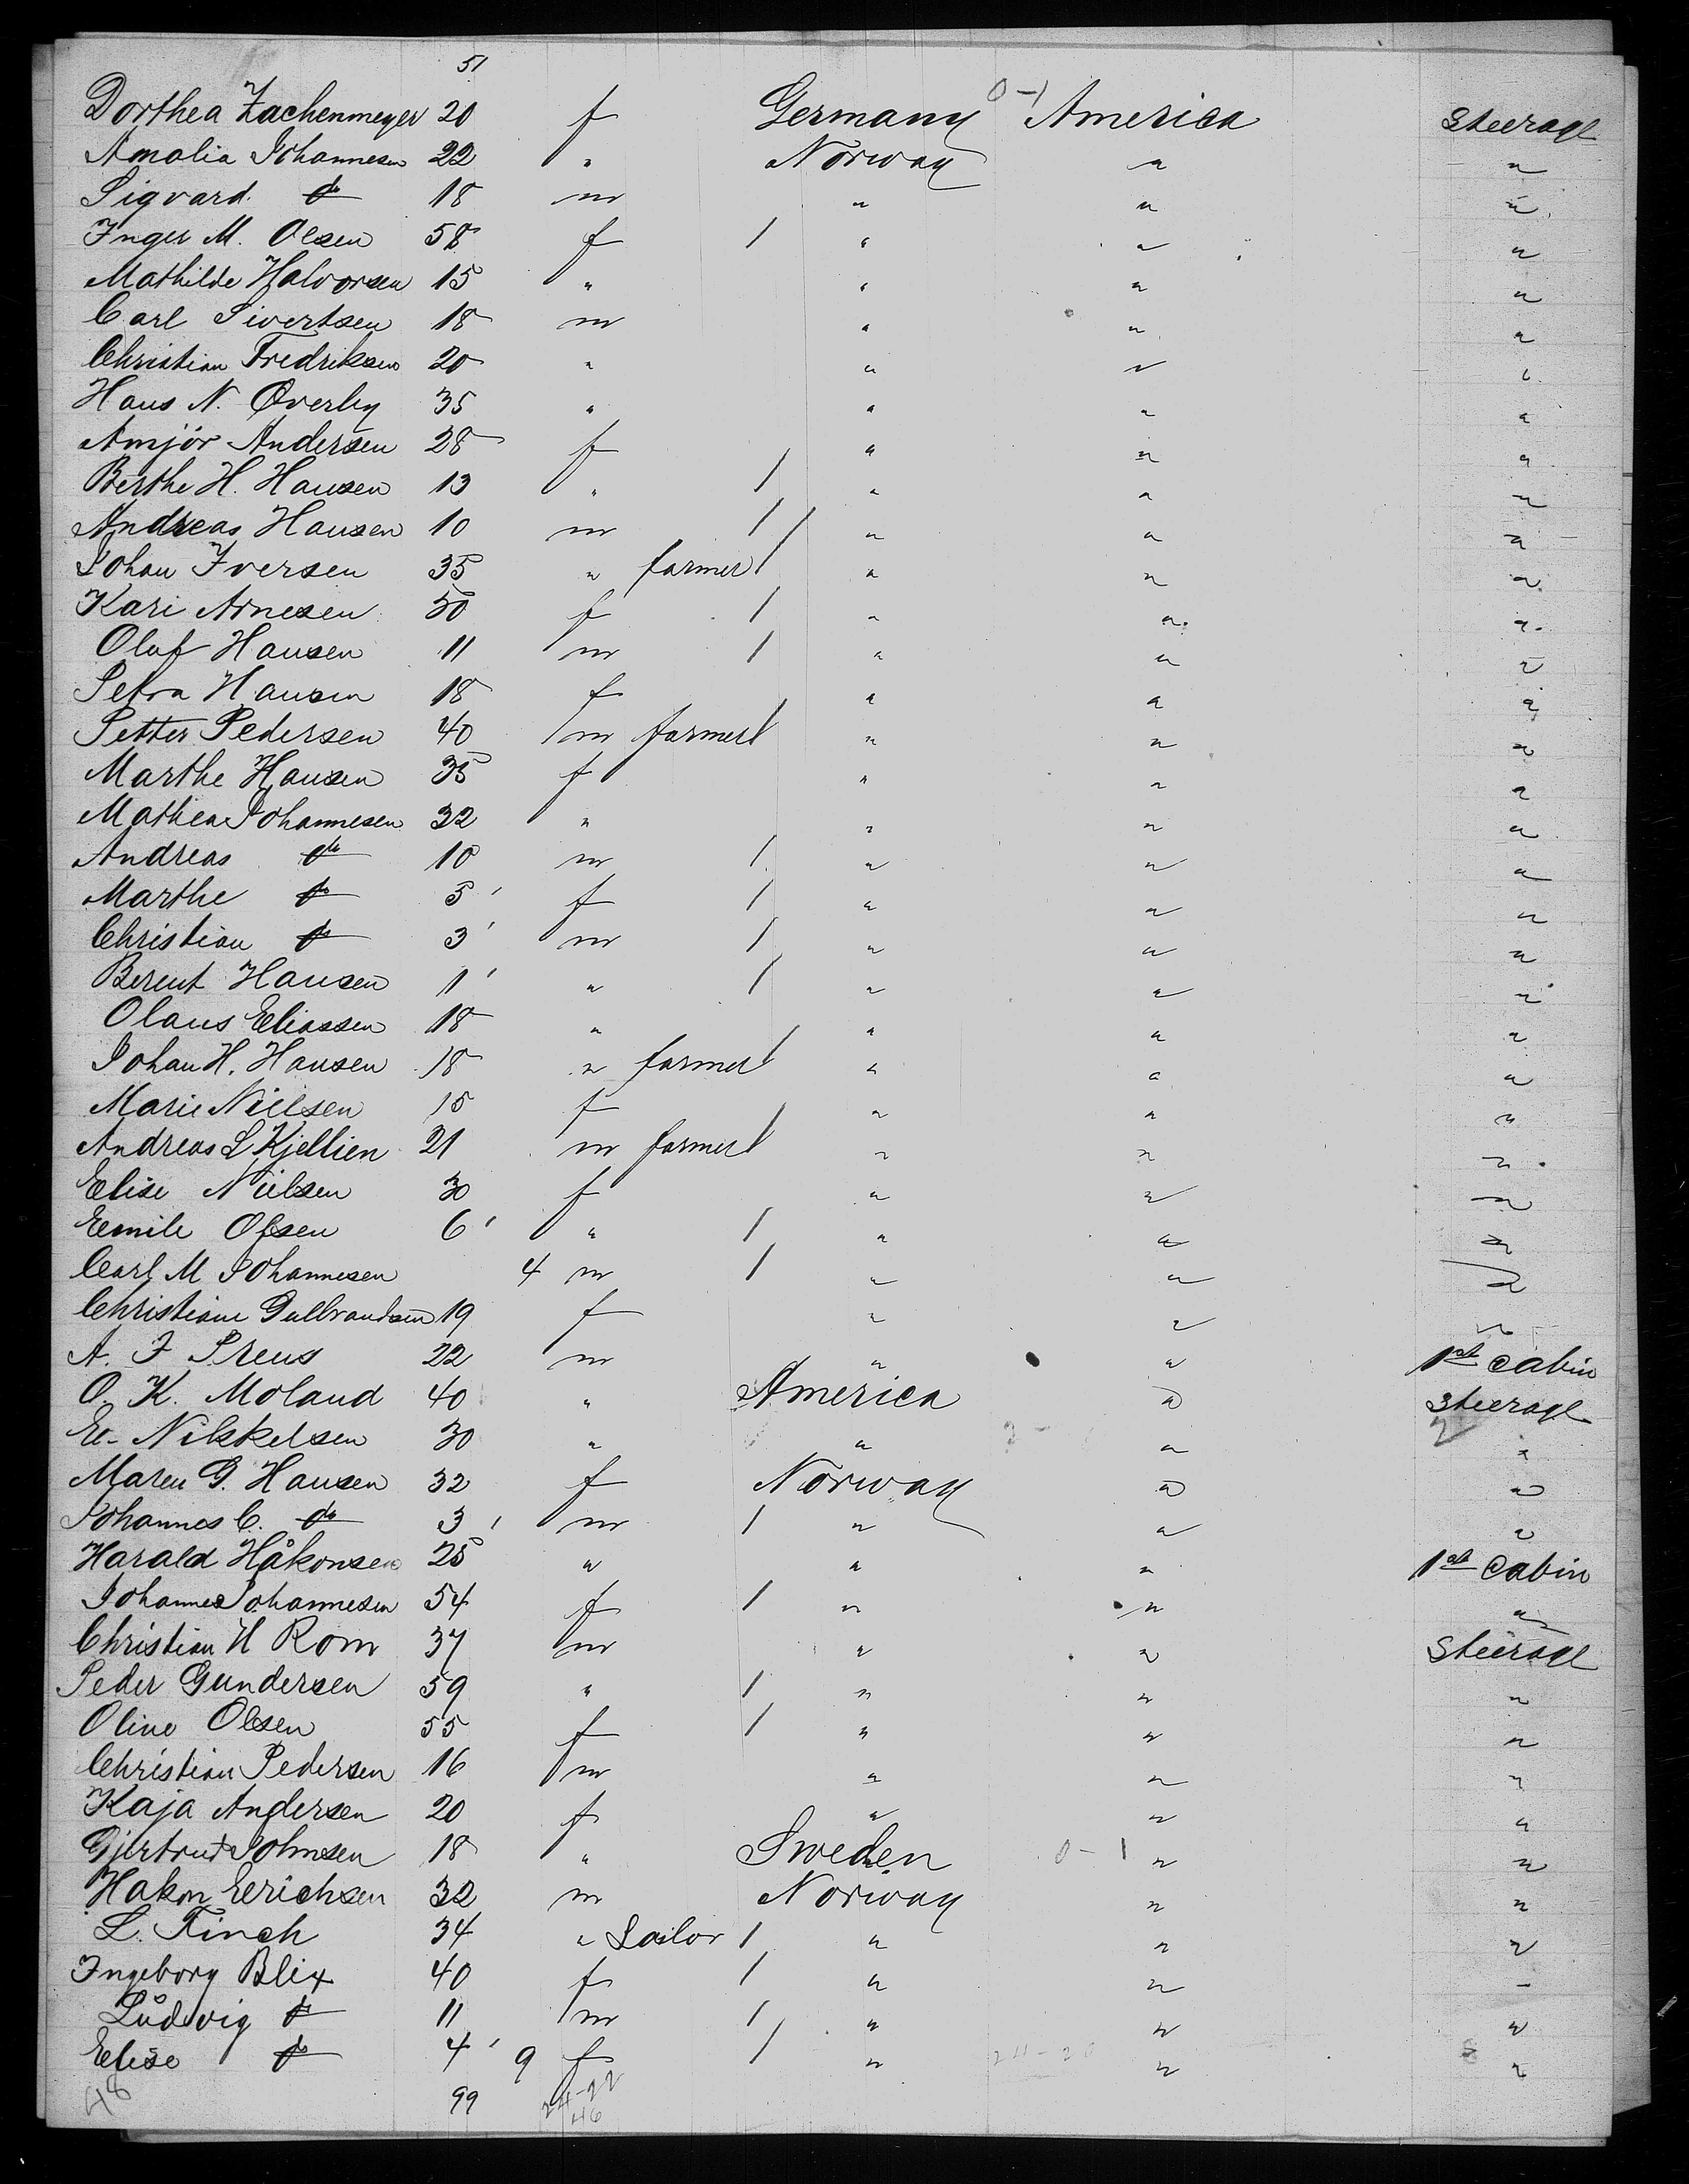 51
Dorthea Zachenmeyer 20 f Germany 0-1 America Steerage
Amalia Johannesen 22 " Norway " "
Sigvard do 18 m " " "
Inger M. Olsen 58 f / " " "
Mathilde Halvorsen 15 " " " "
Carl Sivertsen 18 m " " "
Christian Fredriksen 20 " " " "
Hans N. Øverby 35 " " " "
Amjör Andersen 28 f " " "
Berthe H. Hansen 13 " / " " "
Andreas Hansen 10 m / " " "
Johan Iversen 35 " farmer / " " "
Kari Arnesen 50 f / " " "
Oluf Hansen 11 m / " " "
Petra Hansen 18 f " " "
Petter Pedersen 40 m farmer / " " "
Marthe Hansen 35 f " " "
Mathea Johannesen 32 " " " "
Andreas do 10 m / " " "
Marthe do 5 f / " " "
Christian do 3 m / " " "
Berent Hansen 1 " / " " "
Olaus Eliassen 18 " " " "
Johan H. Hansen 18 " farmer / " " "
Marie Nielsen 15 f " " "
Andreas L Kjellien 21 m farmer / " " "
Elise Nielsen 30 f " " "
Emile Olsen 6 " / " " "
Carl M Johannesen 4 m / " " "
Christiane Gulbrandsen 19 f " " "
A. J Preus 22 m " " 1st Cabin
O. K. Moland 40 " America " Steerage
E. Nikkelsen 30 " " " "
Maren G. Hansen 32 f Norway " "
Johannes C. do 3 m / " " "
Harald Håkonsen 25 " " " 1st Cabin
Johanne Johannesen 54 f / " " "
Christian H Rom 37 m " " Steerage
Peder Gundersen 59 " / " " "
Oline Olsen 55 f / " " "
Christian Pedersen 16 m " " "
Kaja Andersen 20 f " " "
Gjertrud Johnsen 18 " Sweden 0-1 " "
Hakon Erichsen 32 m Norway " "
L. Finch 34 " Sailor / " " "
Ingeborg Blix 40 f / " " "
Ludvig do 11 m / " " "
Elise do 4 9 f / " 24-20 " "
48 99 24-22
46